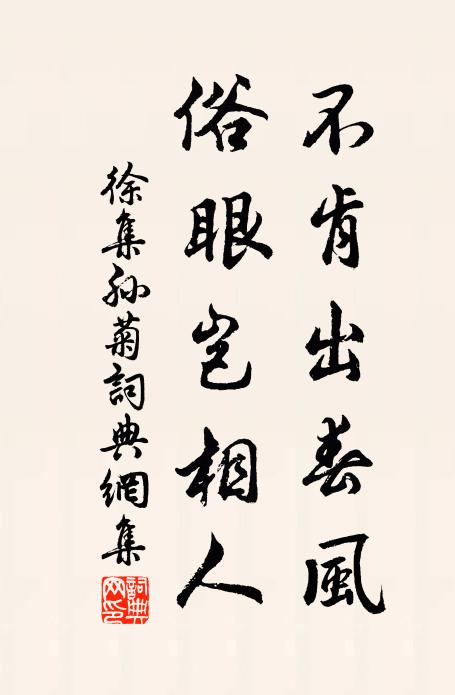 不肯出春風
俗眼豈相人
徐集孙菊詞典網集
詞典网印